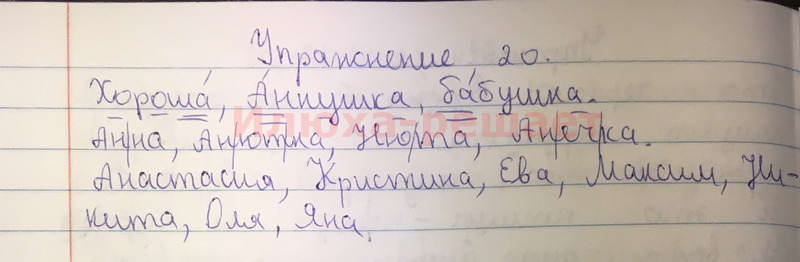 Упражнение 20.
Хороша́, А́ннушка, ба́бушка.
Илюха-решает
Анна, Анютка, Нюта, Анечка.
Анастасия, Кристина, Ева, Максим, Ни-
кита, Оля, Яна.